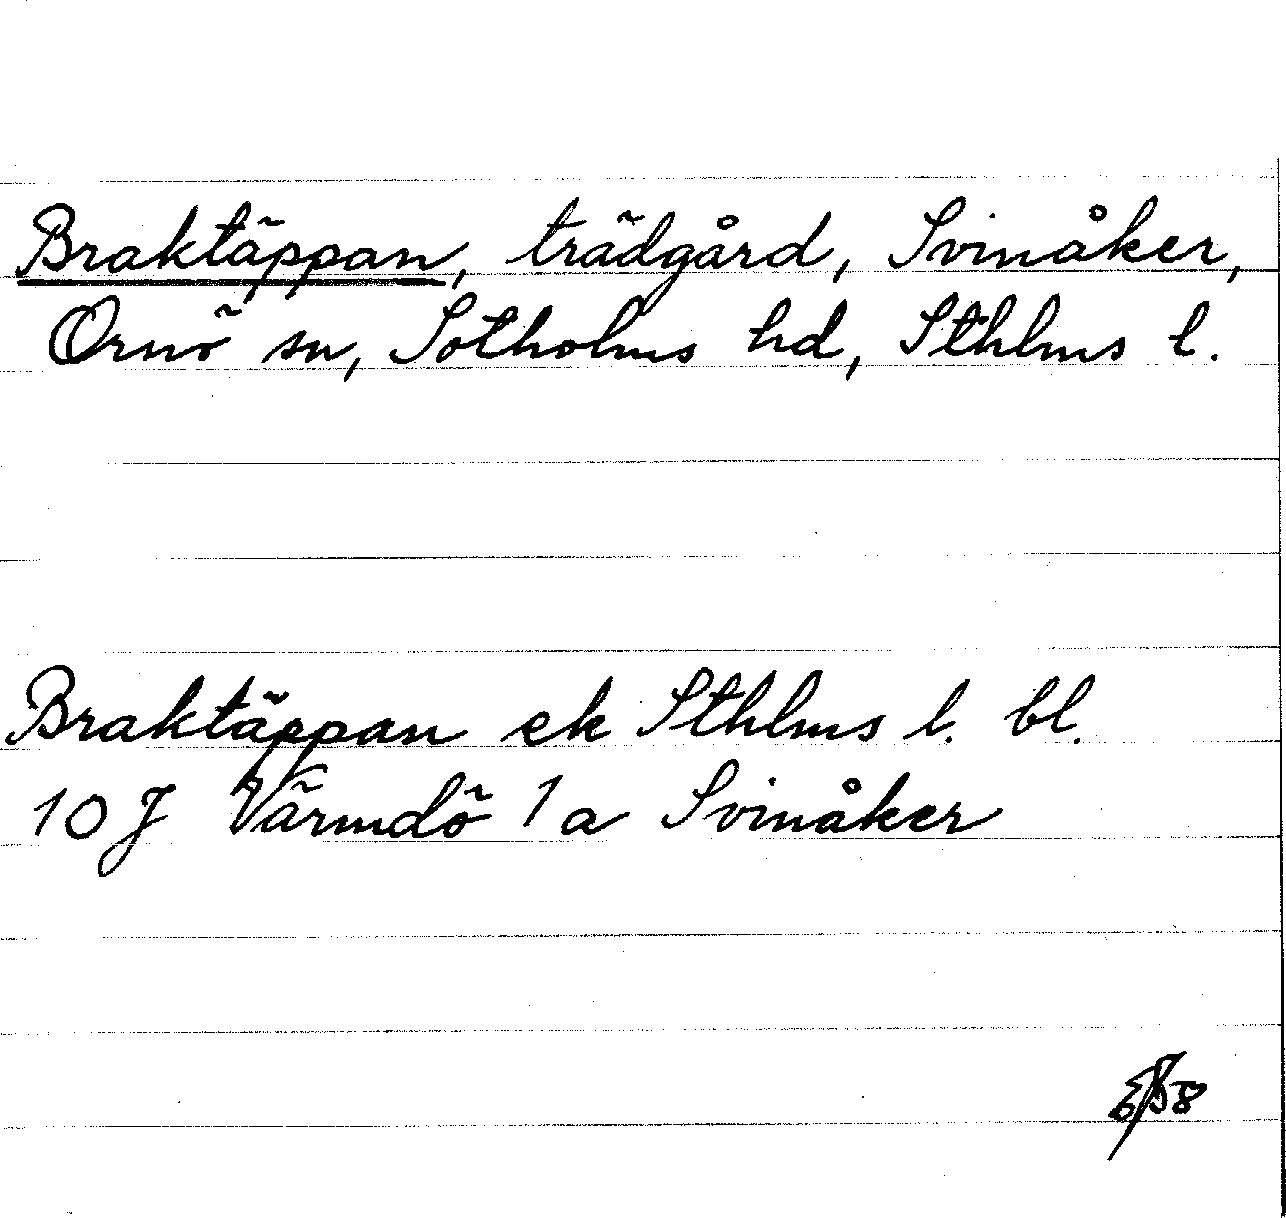 Braktäppan, trädgård, Svinåker,
Ornö sn, Sotholms hd, Sthlms l.
Braktäppan ek Sthlms l. bl.
10 J Värmdö 1 a Svinåker